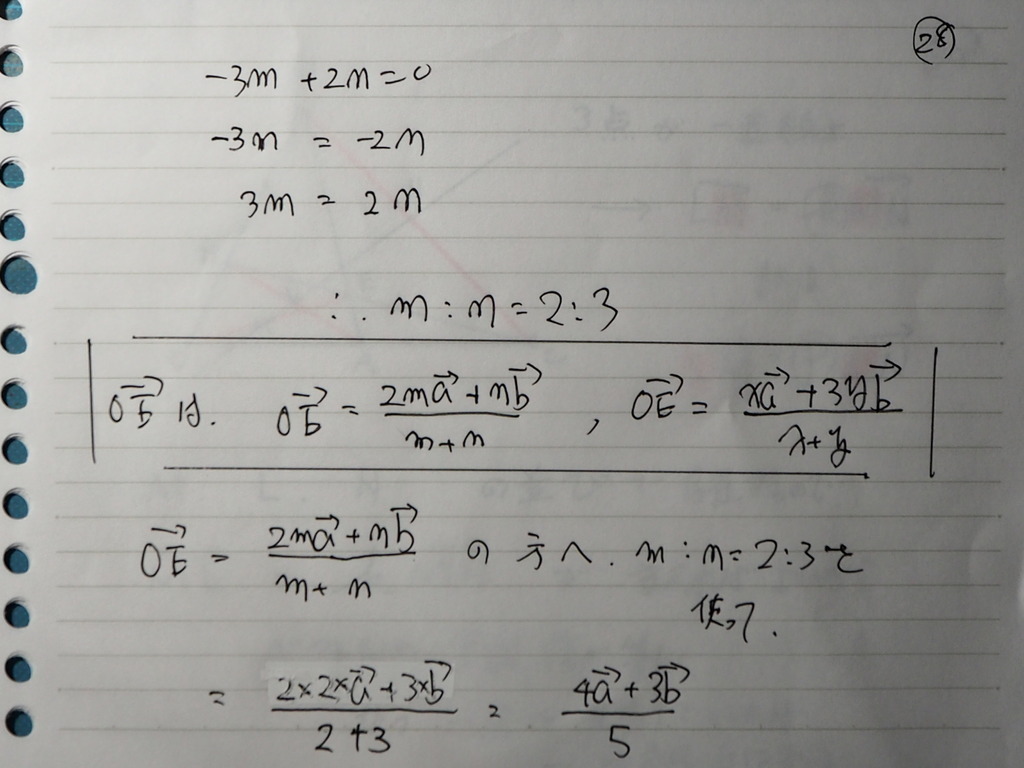 28
-3m + 2n = 0
-3m = -2n
3m = 2n
∴ m : n = 2 : 3
OE→ は. OE→ = (2ma→ + nb→)/(m + n) , OE→ = (xa→ + 3yb→)/(x + y)
OE→ = (2ma→ + nb→)/(m + n) の 方へ. m : n = 2 : 3 を
使って.
= (2×2×a→ + 3×b→)/(2 + 3) = (4a→ + 3b→)/5